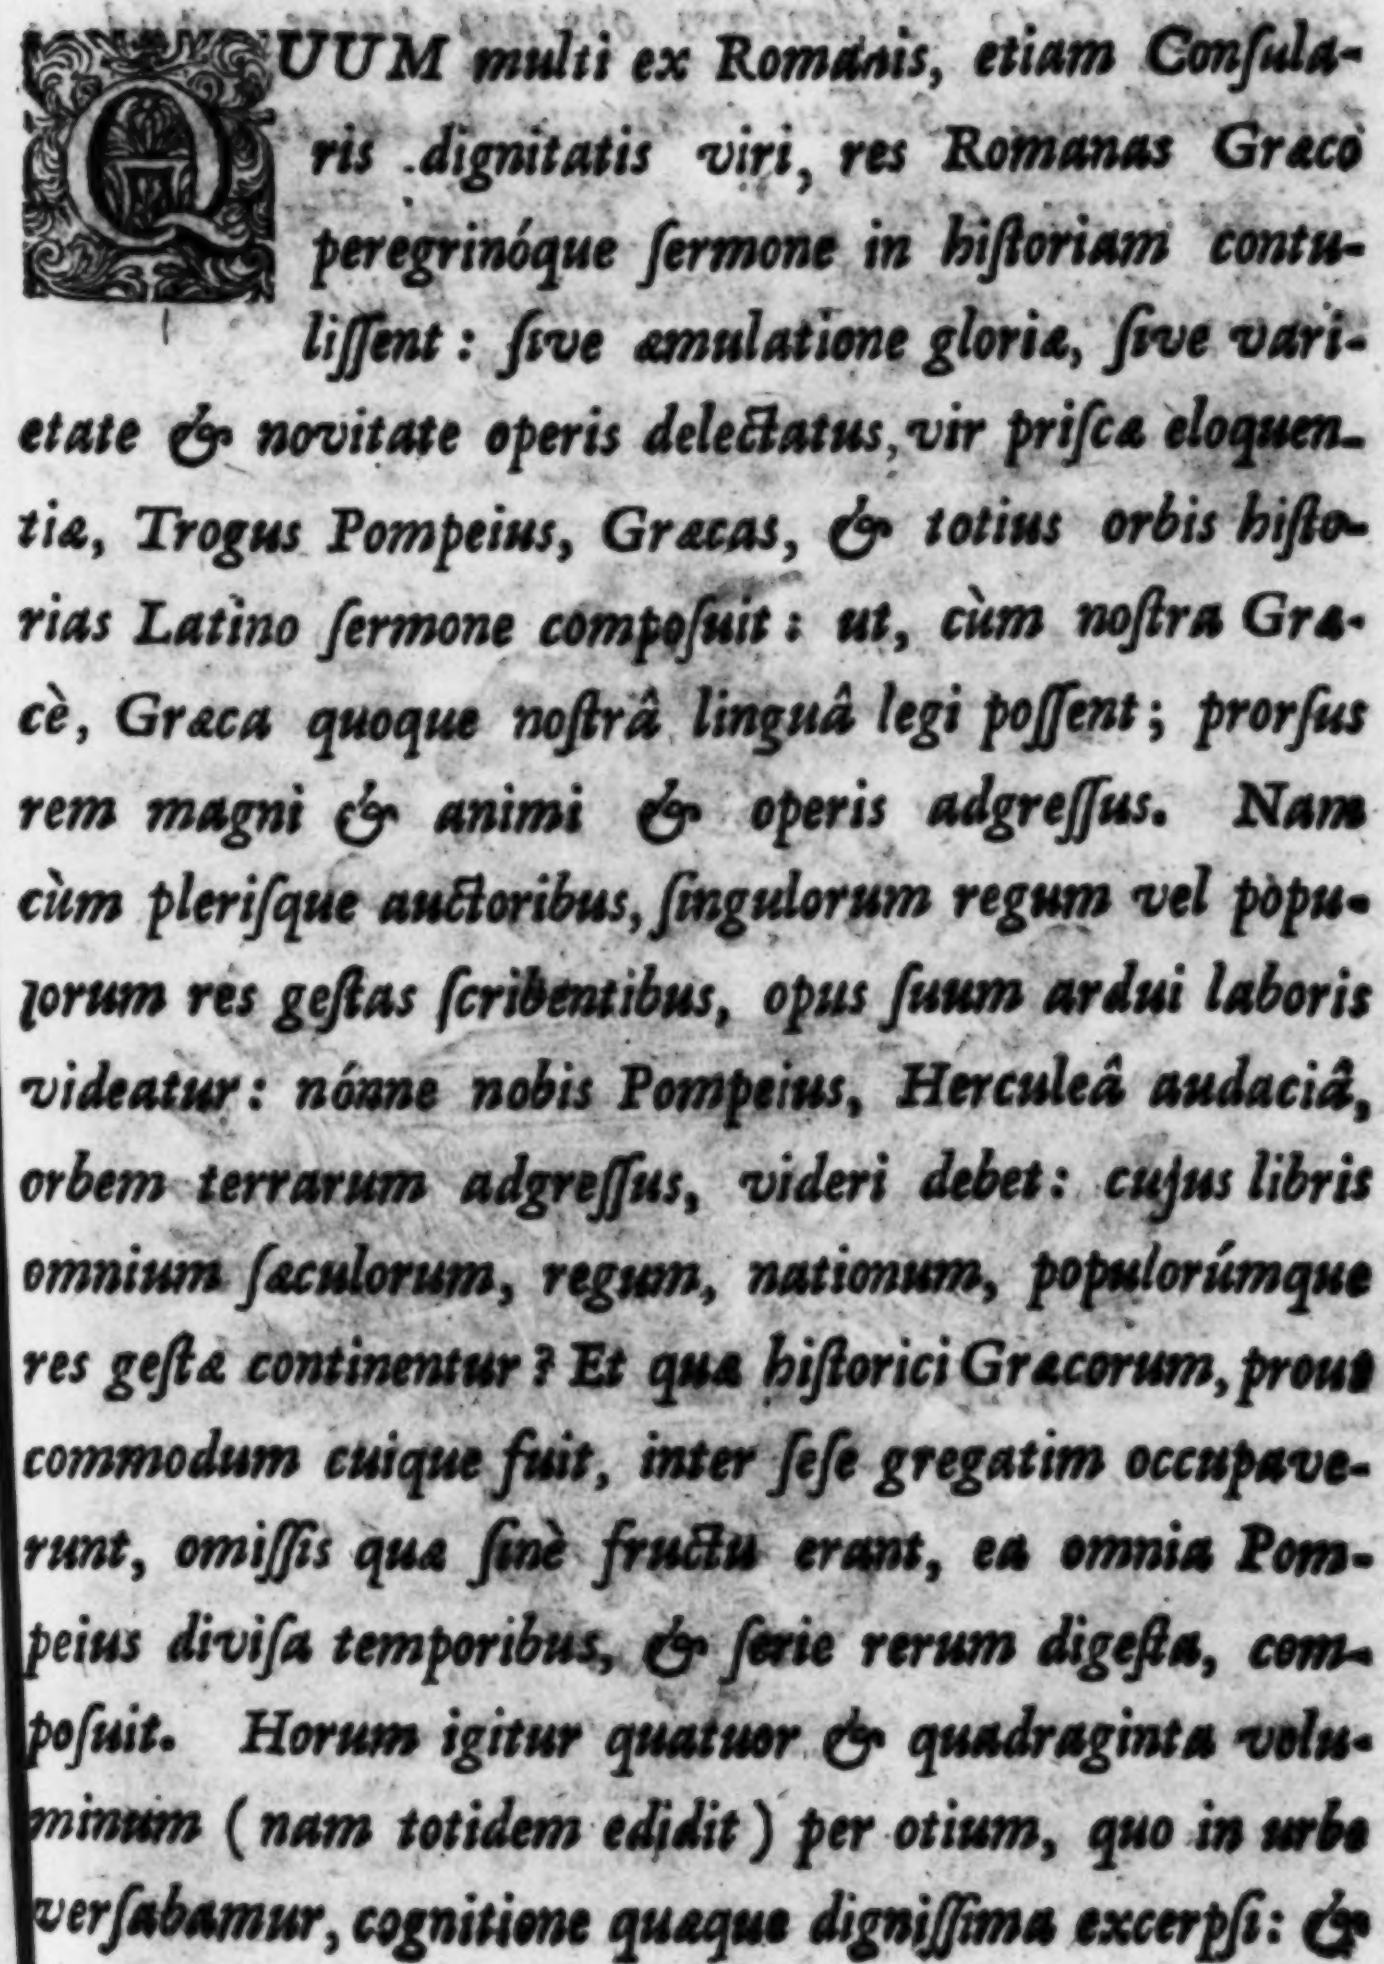 QUUM multi ex Romanis, etiam Conſula-
ris dignitatis viri, res Romanas Græco
peregrinóque ſermone in hiſtoriam contu-
liſſent: ſive æmulatione gloriæ, ſive vari-
etate & novitate operis delectatus, vir priſcæ eloquen-
tiæ, Trogus Pompeius, Græcas, & totius orbis hiſto-
rias Latino ſermone compoſuit: ut, cùm noſtra Græ-
cè, Græca quoque noſtrâ linguâ legi poſſent; prorſus
rem magni & animi & operis adgreſſus. Nam
cùm pleriſque auctoribus, ſingulorum regum vel popu-
lorum res geſtas ſcribentibus, opus ſuum ardui laboris
videatur: nónne nobis Pompeius, Herculeâ audaciâ,
orbem terrarum adgreſſus, videri debet: cujus libris
omnium ſæculorum, regum, nationum, populorúmque
res geſtæ continentur? Et quæ hiſtorici Græcorum, prout
commodum cuique fuit, inter ſeſe gregatim occupave-
runt, omiſſis quæ ſinè fructu erant, ea omnia Pom-
peius diviſa temporibus, & ſerie rerum digeſta, com-
poſuit. Horum igitur quatuor & quadraginta volu-
minum (nam totidem edidit) per otium, quo in urbe
verſabamur, cognitione quæque digniſſima excerpſi: &